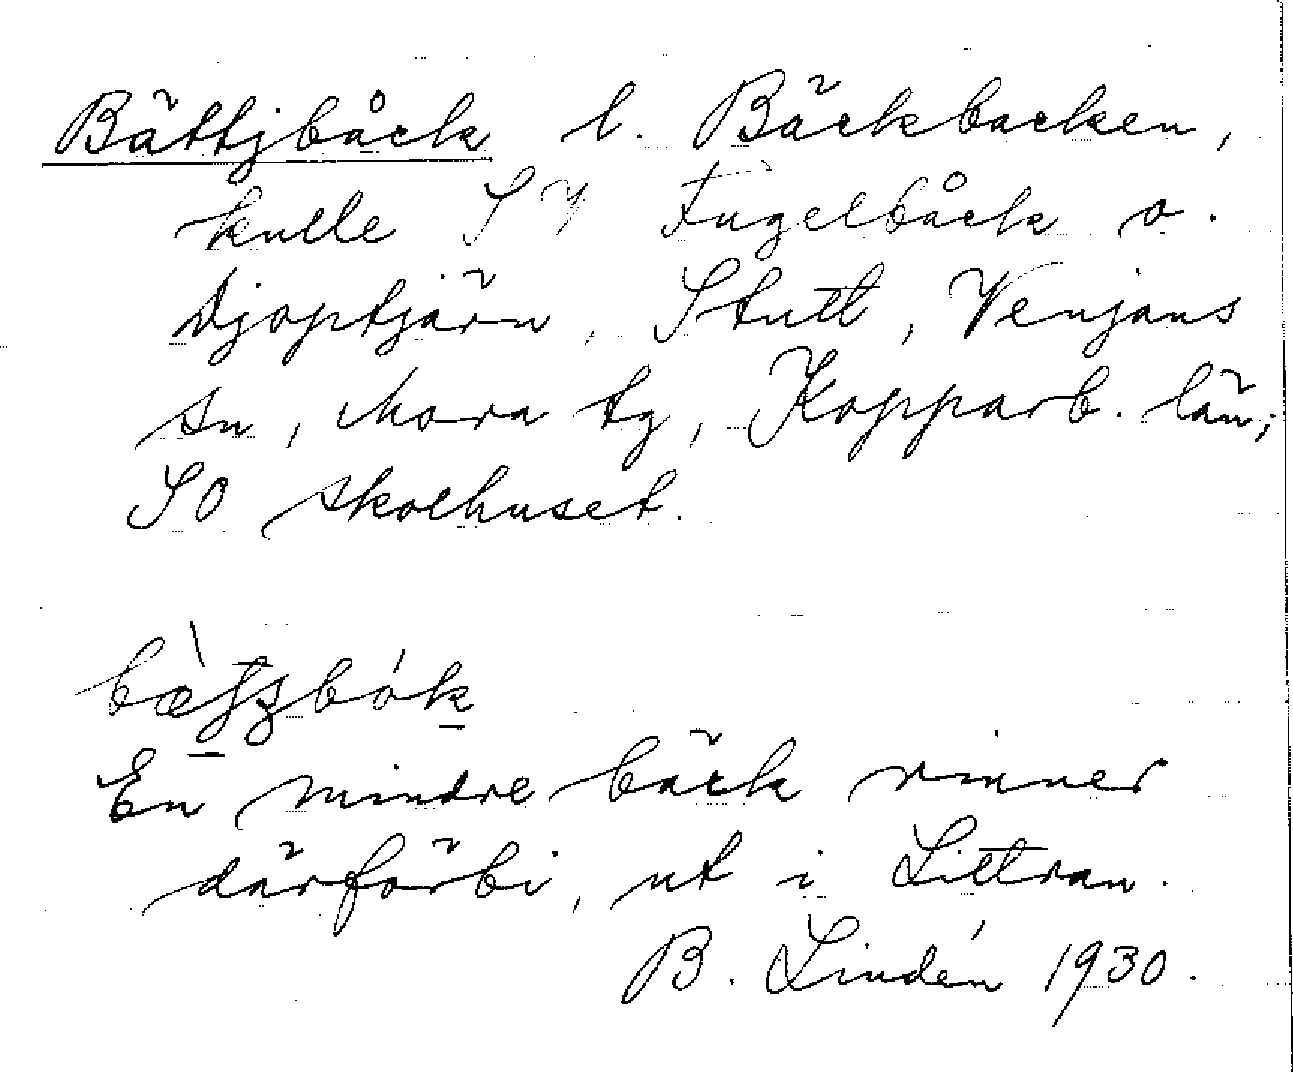 Bättjbåck l. Bäckbacken,
kulle SV Fugelbåck o.
Djoptjärn, Stutt, Venjans
sn, Mora tg, Kopparb. län;
SO skolhuset.
En mindre bäck rinner
därförbi, ut i Littran.
B. Lindén 1930.